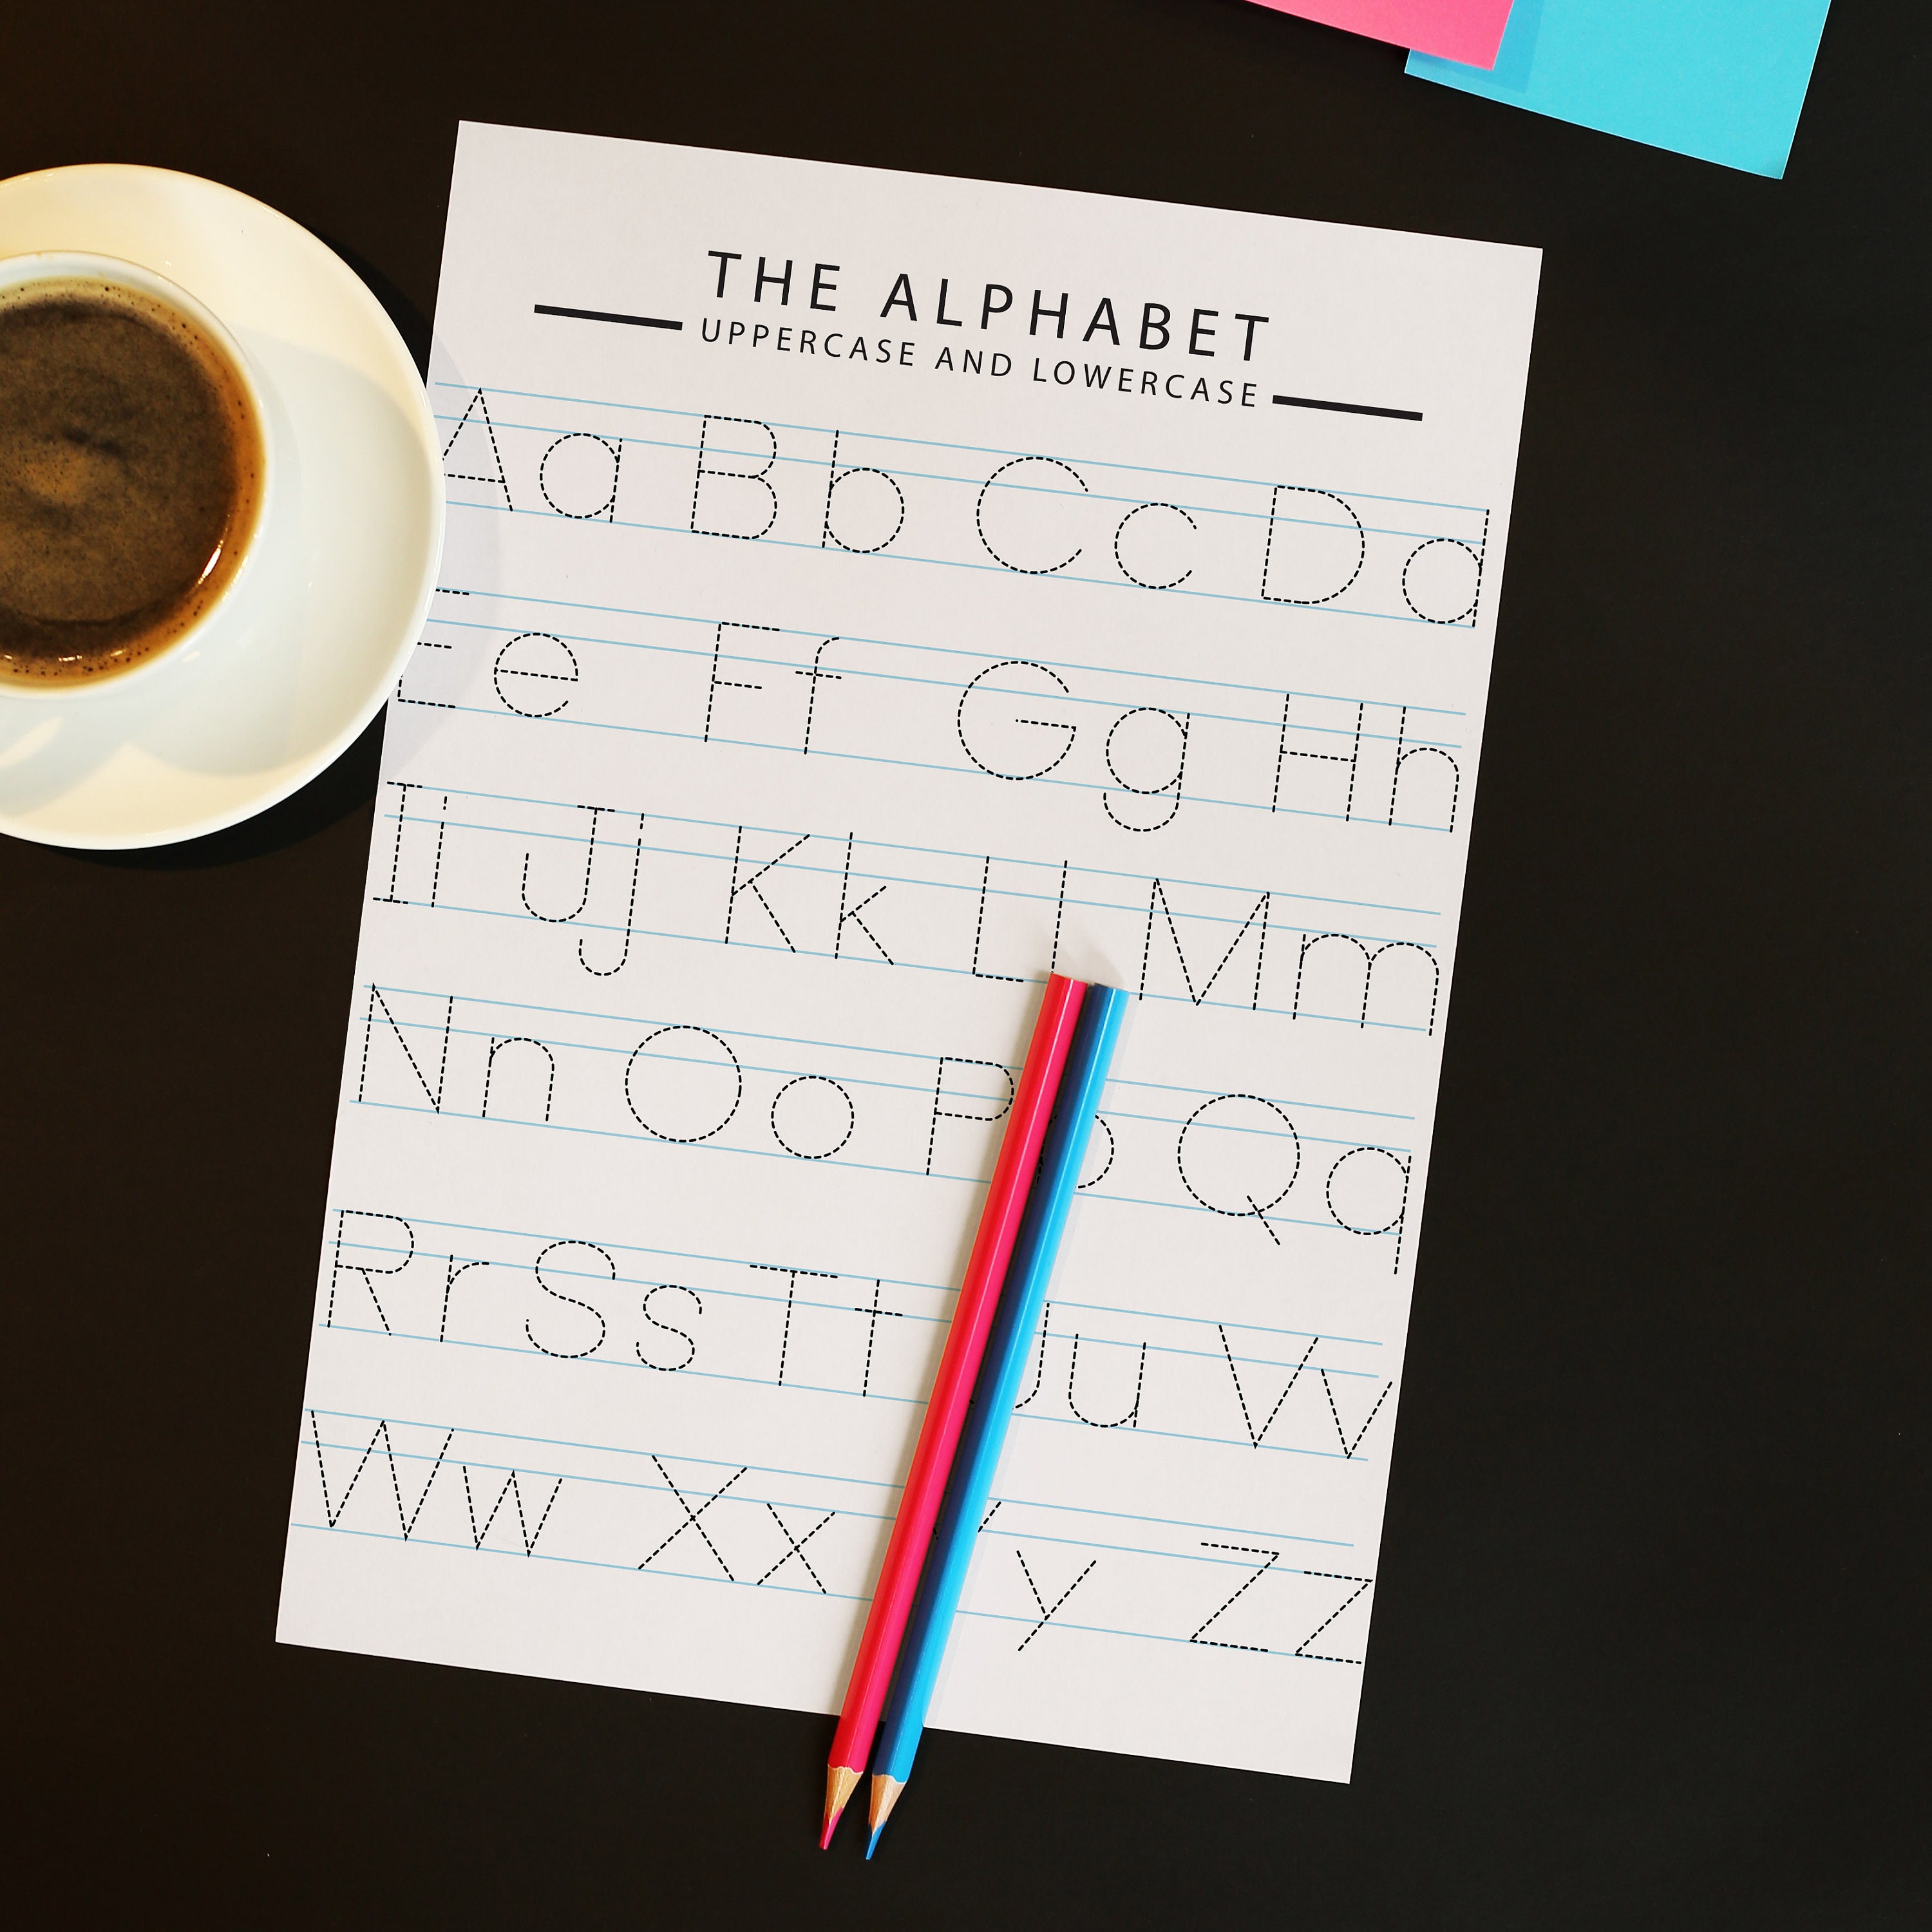 THE ALPHABET
UPPERCASE AND LOWERCASE
A a B b C c D d
E e F f G g H h
I i J j K k L l M m
N n O o P Q q
R r S s T t u V v
W w X x y Z z